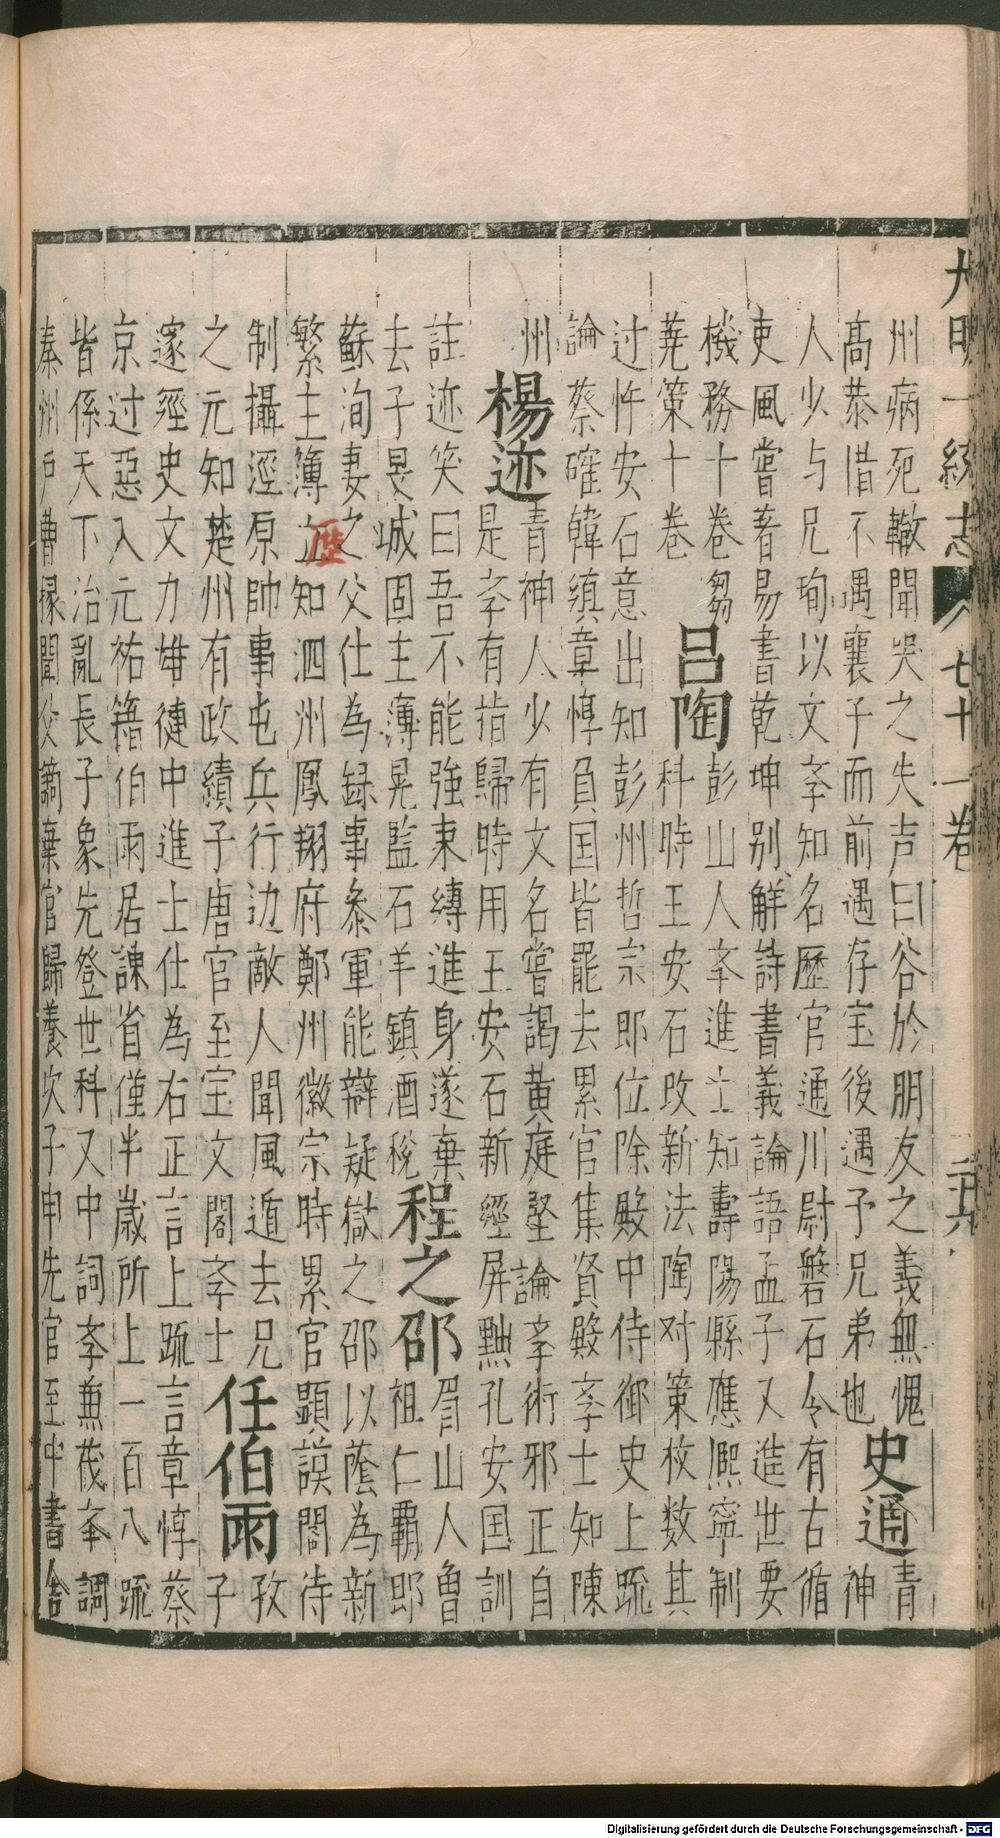 大明一統志 七十一卷 二六
州病死轍聞哭之失声曰谷於朋友之義無愧
高恭惜不遇襄子而前遇存宝後遇予兄弟也
史通
青
神
人少与兄珣以文斈知名歷官通川尉磐石令有古循
吏風嘗著易書乾坤别觧詩書義論語孟子又進世要
機務十巻芻
蕘策十巻
呂陶
彭山人斈進士知壽陽縣應熈寧制
科時王安石改新法陶对策枚数其
过忤安石意出知彭州哲宗即位除殿中侍御史上疏
論蔡確韓縝章惇負国皆罷去累官集賢殿斈士知陳
州
楊迹
青神人少有文名嘗謁黄庭堅論斈術邪正自
是斈有指歸時用王安石新經屏黜孔安国訓
註迹笑曰吾不能強束縛進身遂棄
去子旻城固主薄晃監石羊鎮酒稅
程之邵
眉山人曾
祖仁霸即
蘇洵妻之父仕為録事叅軍能辯疑獄之邵以蔭為新
繁主簿歷知泗州鳳翔府鄭州徽宗時累官顕謨閣待
制攝涇原帥事屯兵行边敵人聞風遁去兄
之元知楚州有政績子唐官至宝文閣斈士
任伯雨
孜
子
邃經史文力雄健中進士仕為右正言上疏言章惇蔡
京过惡入元祐籍伯雨居諫省僅半歲所上一百八疏
皆係天下治亂長子象先登世科又中詞斈兼茂夲調
秦州户曹掾聞父謫棄官歸養次子申先官至中書舍
Digitalisierung gefördert durch die Deutsche Forschungsgemeinschaft - DFG